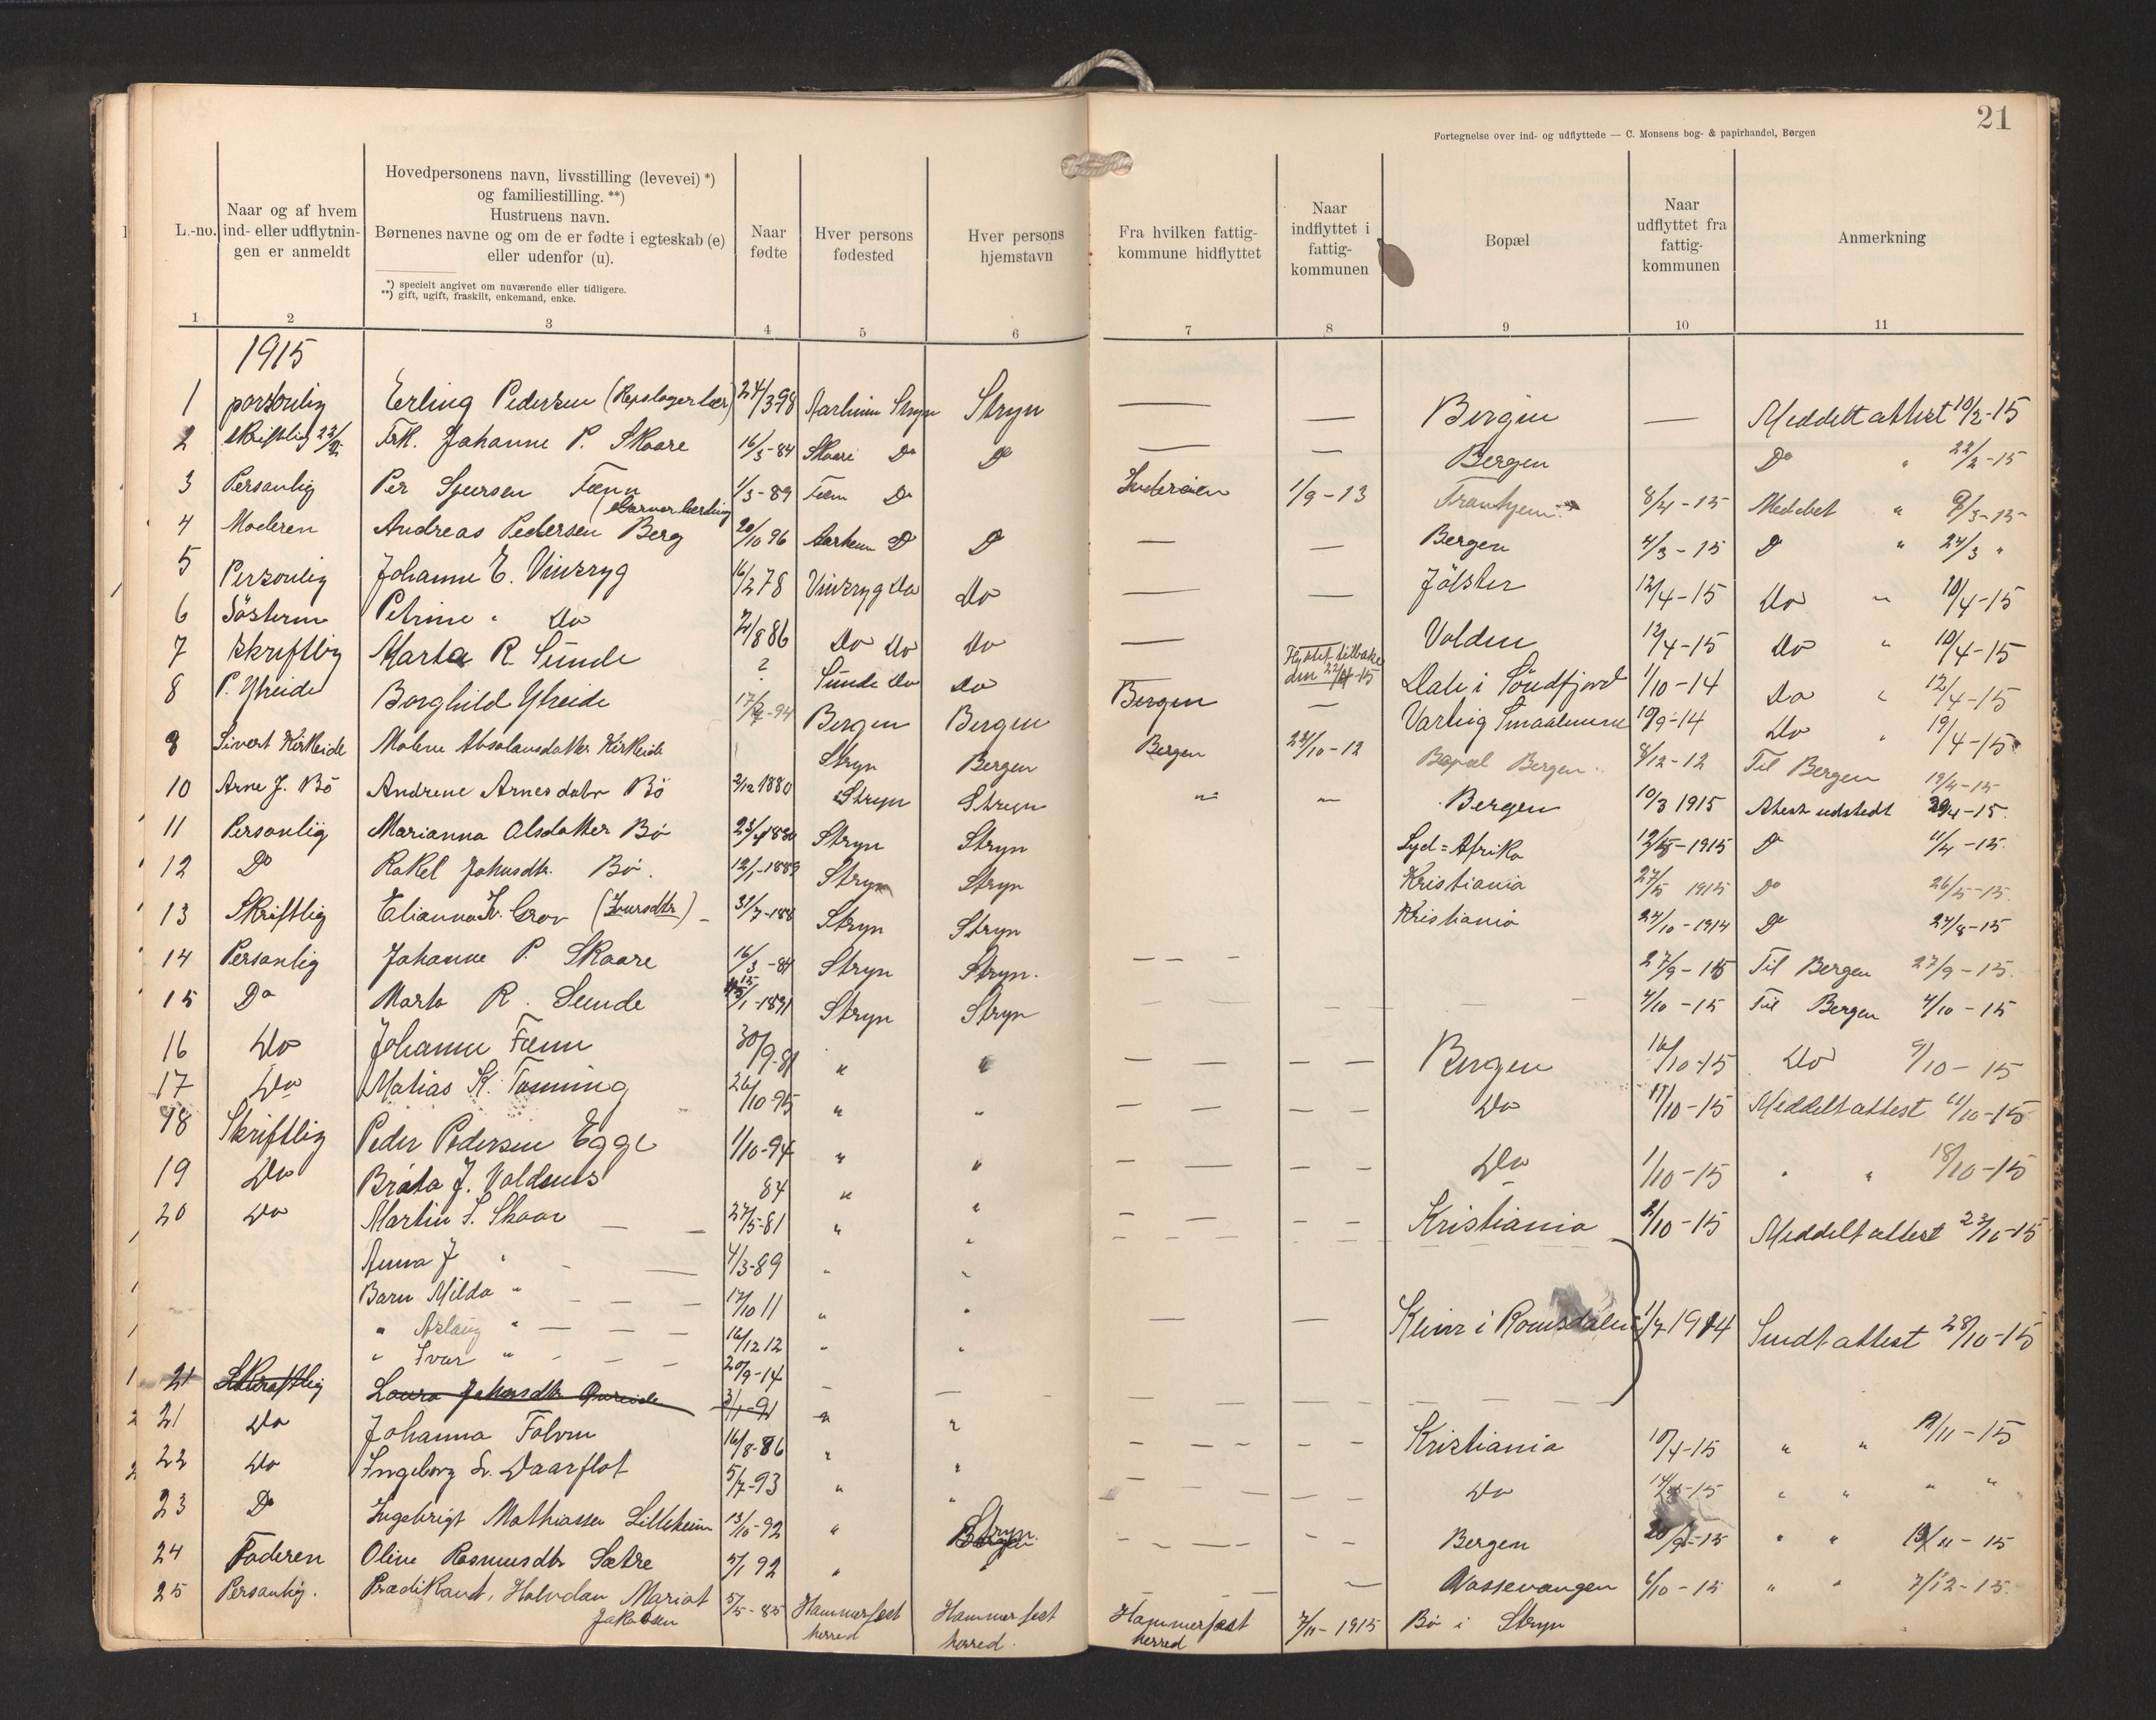 21
Fortegnelse over ind- og udflyttede — C. Monsens bog- & papirhandel, Bergen
L.-no. Naar og af hvem ind- eller udflytnin-gen er anmeldt Hovedpersonens navn, livsstilling (levevei) *) og familiestilling. **) Hustruens navn. Børnenes navne og om de er fødte i egteskab (e) eller udenfor (u). Naar fødte Hver persons fødested Hver persons hjemstavn Fra hvilken fattig-kommune hidflyttet Naar indflyttet i fattig-kommunen Bopæl Naar udflyttet fra fattig-kommunen Anmerkning
*) specielt angivet om nuværende eller tidligere.
**) gift, ugift, fraskilt, enkemand, enke.
1 2 3 4 5 6 7 8 9 10 11
1915
1 personlig Erling Pedersen (Repslagerlær) 24/3-98 Aarheim Stryn Stryn — — Bergen — Meddelt attest 10/2-15
2 skriftlig 22/2 Frk. Johanne P. Skaare 16/3-84 Skaare Do Do — — Bergen Do " 22/2-15
3 Personlig Per Sjursen Fænn 1/3-89 Fæn Do Inderøien 1/9-13 Trontjem 8/4-15 Meddelt " 9/3-15
4 Moderen Andreas Pedersen Berg (Garverlærling 20/10 96 Aarheim Do Do — — Bergen 4/3-15 Do " 24/3 "
5 Personlig Johanne E. Vinsryg 16/2 78 Vinsryg Do Do — — Jölster 12/4-15 Do " 10/4-15
6 Søsteren Petrine " Do 2/8 86 Do Do Do — Volden 12/4-15 Do " 10/4-15
7 skriftlig Marta R. Sunde ? Sunde Do Do Flyttet tilbake den 22/4-15 Dale i Söndfjord 1/10-14 Do " 12/4-15
8 P. Ytreide Borghild Ytreide 17/2-94 Bergen Bergen Bergen — Varteig Smaalenene 10/9-14 Do " 19/4-15
9 Sivert Kirkeide Malene Absalonsdatter Kirkeide Stryn Bergen Bergen 22/10-12 Bopæl Bergen 8/12-12 Til Bergen 19/4-15
10 Arne J. Bö Andrene Arnesdatr Bö 2/12 1880 Stryn Stryn " — Bergen 10/3 1915 Attest udstedt 29/4-15.
11 Personlig Marianna Olsdatter Bö 23/4 1880 Stryn Stryn Syd=Afrika 12/5-1915 Do 11/4-15
12 Do Rakel Johnsdtr. Bö. 12/1-1889 Stryn Stryn Kristiania 27/5 1915 Do 26/5-15.
13 Skriftlig Elianna K. Grov (Iversdtr) 31/7-188 Stryn Stryn Kristiania 24/10-1914 Do 24/8-15
14 Personlig Johanne P. Skaare 16/3-84 Stryn Stryn. — — — 27/9-15 Til Bergen 27/9-15.
15 Do Marta R. Sunde 15/1-1891 Stryn Stryn 4/10-15 Til Bergen 4/10-15
16 Do Johanne Fænn 30/9-81 " " — — — — Bergen 16/10-15 Do 9/10-15
17 Do Matias K. Tonning 26/10-95 " " — — — — Do 17/10-15 Meddelt attest 11/10-15
18 Skriftlig Peder Pedersen Egge 1/10-94 " " — — — — Do 1/10-15 " " 18/10-15
19 Do Bráta J. Voldsnes 84 " " — — — — Kristiania 2/10-15 Meddelt attest 23/10-15
20 Do Martin S. Skaar 27/5-81 " "
Anna J " 4/3-89 " "
Barn Milda " 17/10 11 " " — — Kleive i Romsdalen 1/7 1914 Sendt attest 28/10-15
" Aslaug " 16/12 12 " "
" Ivar " 20/9-14
21 Skriftlig Laura Johnsdtr 3/1-91
21 Do Johanna Folven 16/8-86 " " Kristiania 10/4-15 " " 12/11-15
22 Do Ingeborg L. Daarflot 5/7-93 " " Do " " " "
23 Do Ingebrigt Mathiassen Lillekeim 13/10-92 " Stryn. Bergen 20/9-15 " " 13/11-15
24 Faderen Oline Rasmusdtr Sætre 5/1 92 " " Vossevangen 6/10-15 " " 7/12-15.
25 Personlig. Prædikant, Halvdan Mariot Jakobsen 5/5-85 Hammerfest herred Hammerfest herred. Hammerfest herred 7/11-1915 Bö i Stryn